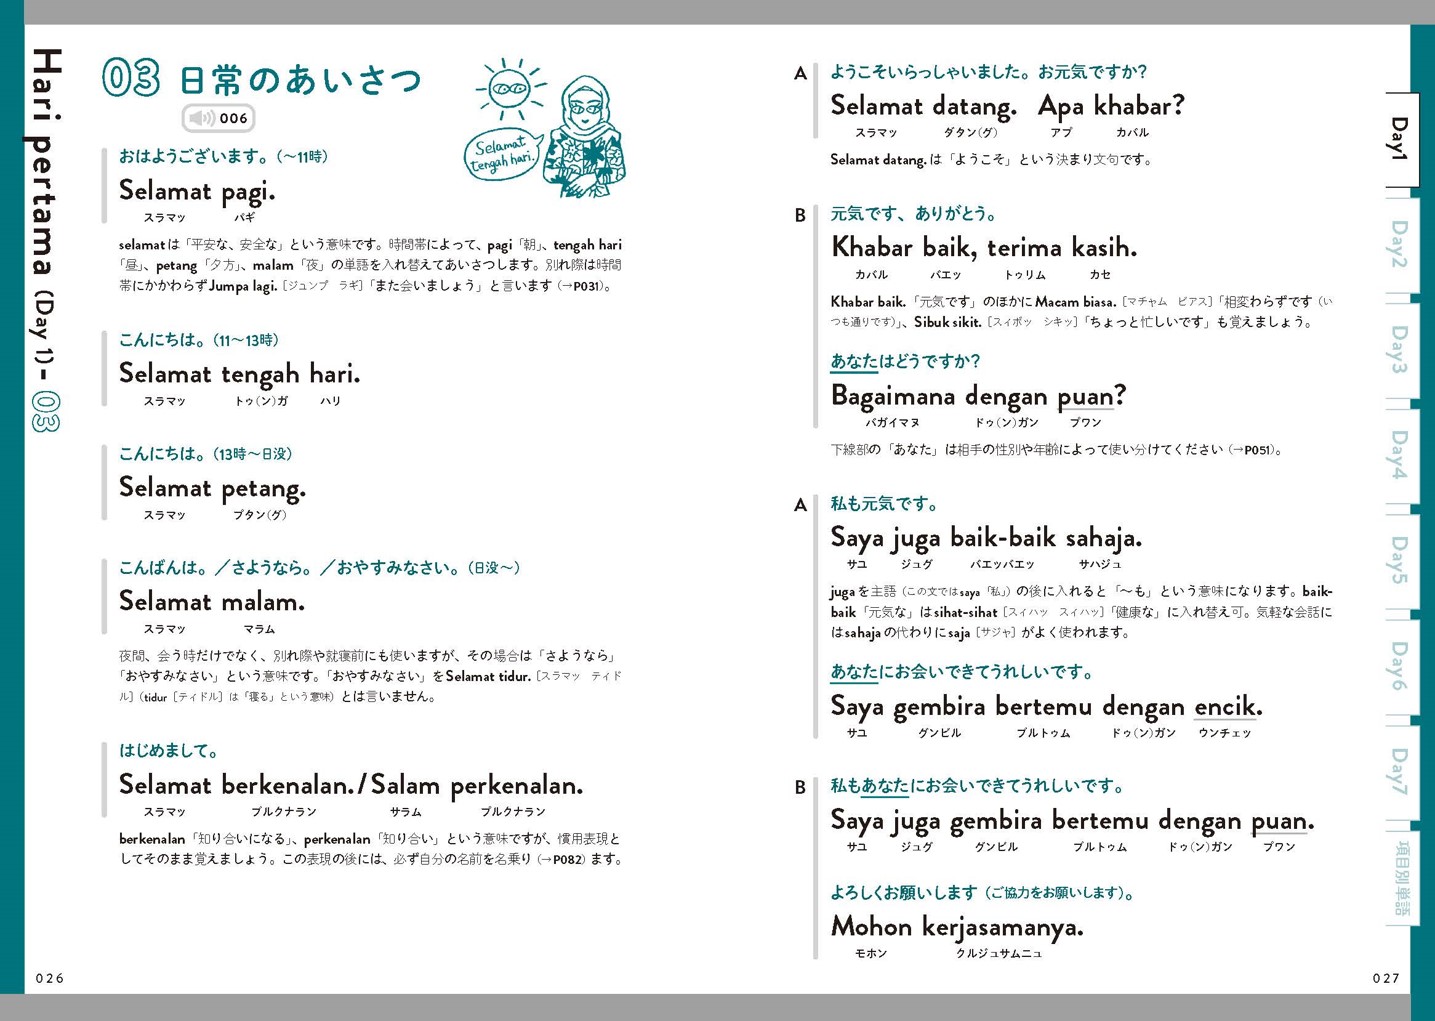 Hari pertama (Day 1)- 03
03 日常のあいさつ
006
Selamat
tengah hari.
おはようございます。（～11時）
Selamat pagi.
スラマッ パギ
selamatは「平安な、安全な」という意味です。時間帯によって、pagi「朝」、tengah hari
「昼」、petang「夕方」、malam「夜」の単語を入れ替えてあいさつします。別れ際は時間
帯にかかわらずJumpa lagi.［ジュンプ ラギ］「また会いましょう」と言います（→P031）。
こんにちは。（11～13時）
Selamat tengah hari.
スラマッ トゥ（ン）ガ ハリ
こんにちは。（13時～日没）
Selamat petang.
スラマッ プタン（グ）
こんばんは。／さようなら。／おやすみなさい。（日没～）
Selamat malam.
スラマッ マラム
夜間、会う時だけでなく、別れ際や就寝前にも使いますが、その場合は「さようなら」
「おやすみなさい」という意味です。「おやすみなさい」をSelamat tidur.［スラマッ ティド
ル］（tidur［ティドル］は「寝る」という意味）とは言いません。
はじめまして。
Selamat berkenalan./Salam perkenalan.
スラマッ ブルクナラン サラム プルクナラン
berkenalan「知り合いになる」、perkenalan「知り合い」という意味ですが、慣用表現と
してそのまま覚えましょう。この表現の後には、必ず自分の名前を名乗り（→P082）ます。
026
A ようこそいらっしゃいました。お元気ですか？
Selamat datang. Apa khabar?
スラマッ ダタン（グ） アプ カバル
Selamat datang.は「ようこそ」という決まり文句です。
B 元気です、ありがとう。
Khabar baik, terima kasih.
カバル バエッ トゥリム カセ
Khabar baik.「元気です」のほかにMacam biasa.［マチャム ビアス］「相変わらずです（い
つも通りです）」、Sibuk sikit.［スィボッ シキッ］「ちょっと忙しいです」も覚えましょう。
あなたはどうですか？
Bagaimana dengan puan?
バガイマヌ ドゥ（ン）ガン プワン
下線部の「あなた」は相手の性別や年齢によって使い分けてください（→P051）。
A 私も元気です。
Saya juga baik-baik sahaja.
サユ ジュグ バエッバエッ サハジュ
jugaを主語（この文ではsaya「私」）の後に入れると「～も」という意味になります。baik-
baik「元気な」はsihat-sihat［スィハッ スィハッ］「健康な」に入れ替え可。気軽な会話に
はsahajaの代わりにsaja［サジャ］がよく使われます。
あなたにお会いできてうれしいです。
Saya gembira bertemu dengan encik.
サユ グンビル ブルトゥム ドゥ（ン）ガン ウンチェッ
B 私もあなたにお会いできてうれしいです。
Saya juga gembira bertemu dengan puan.
サユ ジュグ グンビル ブルトゥム ドゥ（ン）ガン プワン
よろしくお願いします（ご協力をお願いします）。
Mohon kerjasamanya.
モホン クルジュサムニュ
027
Day1
Day2
Day3
Day4
Day5
Day6
Day7
項目別単語